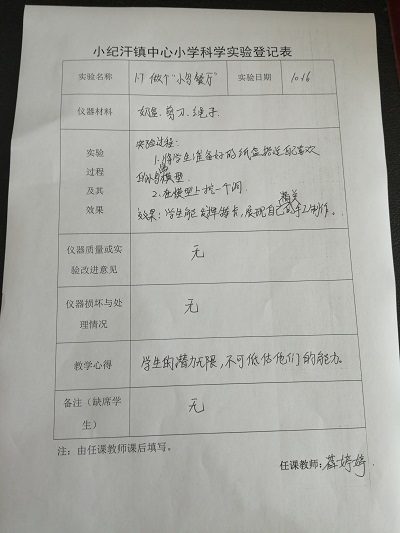 小纪汗镇中心小学科学实验登记表
实验名称 17 做个“小鸟餐厅” 实验日期 10.16
仪器材料 奶盒、剪刀、绳子
实验
过程
及其
效果
实验过程:
1.将学生准备好的纸盒
模型
2.在模型上挖一个洞
效果:学生能发挥 展现自己精美的手工制作。
仪器质量或实
验改进意见 无
仪器损坏与处
理情况 无
教学心得 学生的潜力无限,不可低估他们的能力。
备注(缺席学
生) 无
注:由任课教师课后填写。
任课教师:薛婷婷